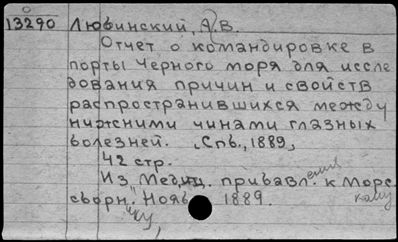 13290 Любинский, А. В.
Отчет о командировке в
порты Черного моря для иссле
дования причин и свойств
распространившихся между
нижними чинами глазных
болезней. Спб., 1889,
42 стр.
Из "Медиц. прибавлениям к Морс
кому сборн." Нояб 1889.